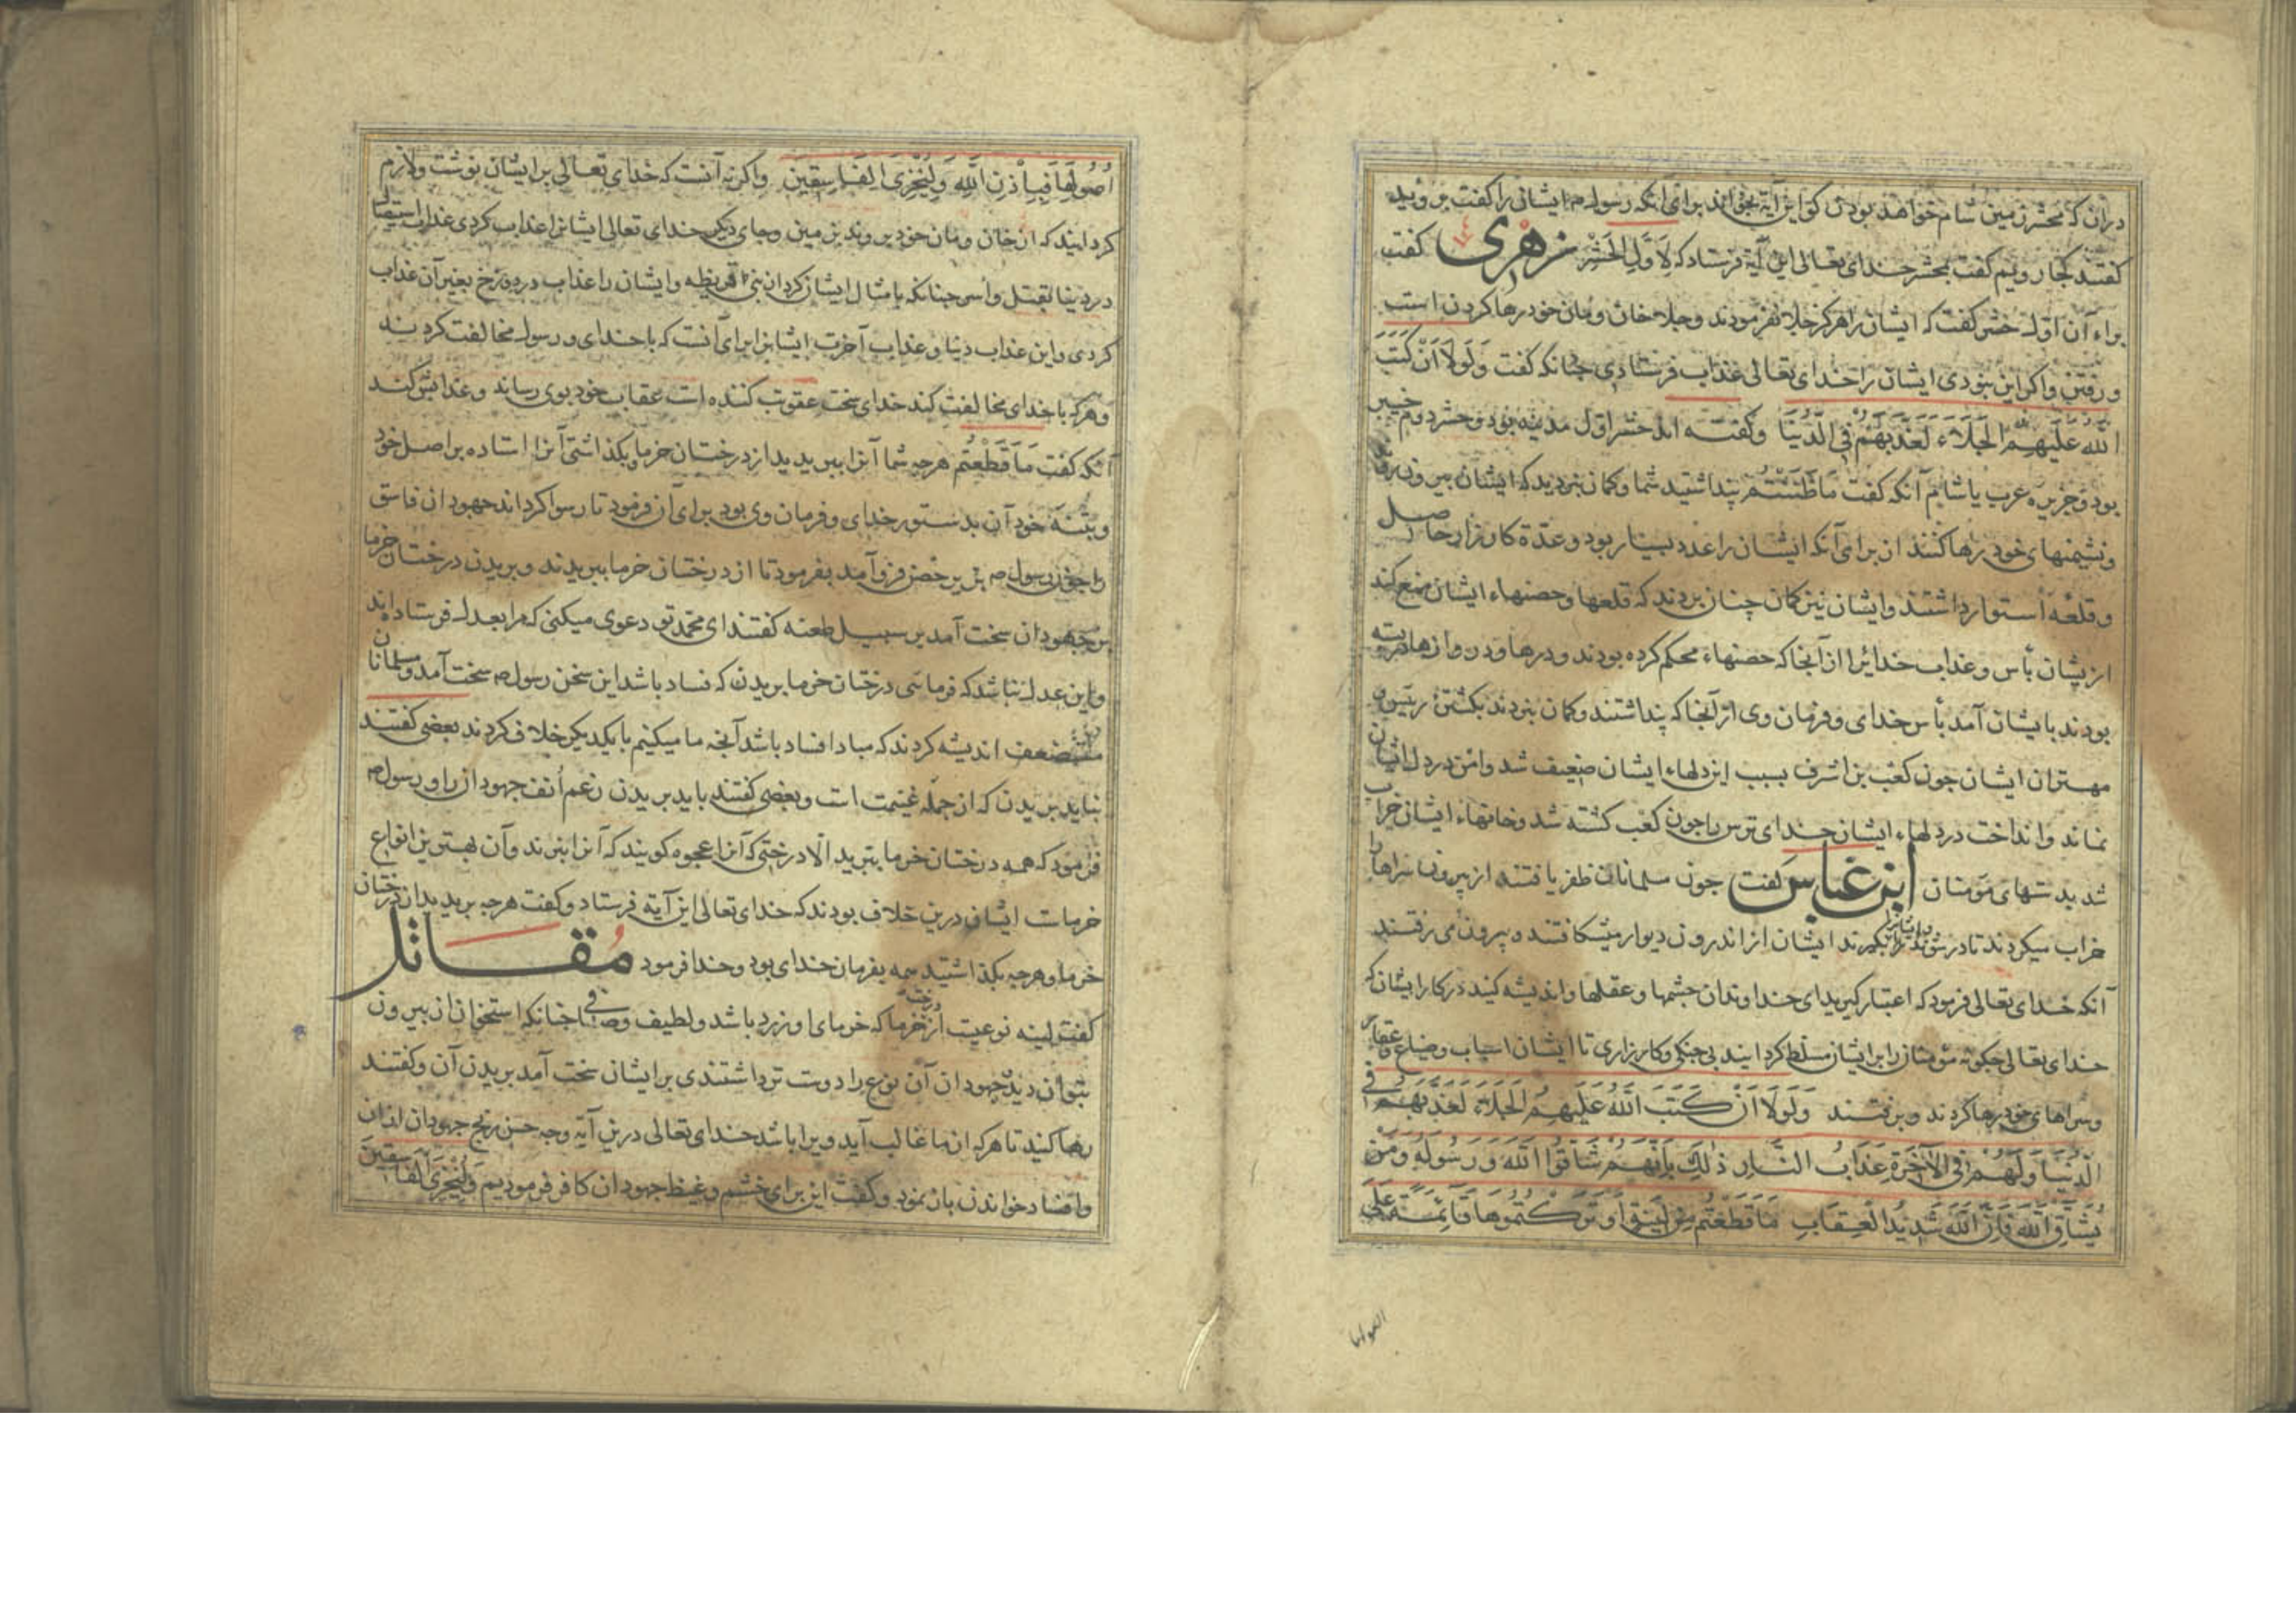 در آن که محشر زمین شام خواهد بودن کو این آیة بخواند برای آنکه رسول ص ایشان را کفت بروید
کفتند کجا رویم کفت بمحشر خدای تعالی این آیة فرستاد که لِاَوَّلِ الْحَشْرِ زهری کفت
براء آن اول حشر کفت که ایشان را هرکز جلا نفرمودند و جلا خان و مان خود رها کردن است
و رفتن و اکر این نبودی ایشان را خدای تعالی عذاب فرستادی چنانکه کفت وَلَوْلَا اَنْ كَتَبَ
اللّٰهُ عَلَيْهِمُ الْجَلَاءَ لَعَذَّبَهُمْ فِي الدُّنْيَا وکفته اند حشر اول مدینه بود و حشر دوم خیبر
بود و جزیره عرب یا شام آنکه کفت مَا ظَنَنْتُمْ پنداشتید شما و کمان نبردید که ایشان بیرون روند
و نشیمنهای خود رها کنند از برای آنکه ایشان را عدد بسیار بود و عدّة کارزار حاصل
و قلعه استوار داشتند و ایشان نیز کمان چنان بردند که قلعها و حصنهاء ایشان منع کند
از یشان بأس و عذاب خدایرا از آنجا که حصنهاء محکم کرده بودند و درها و دروازها بسته
بودند بایشان آمد بأس خدای و فرمان وی از آنجا که پنداشتند و کمان نبودند بکشتن رئیسان
مهتران ایشان جون کعب بن اشرف بسبب این دلهاء ایشان ضعیف شد و امن در دل ایشان
نماند و انداخت در دلهاء ایشان خدای ترس را جون کعب کشته شد و خانهاء ایشان خراب
شد بدستهای مؤمنان ابن عباس کفت جون مسلمانان ظفر یافتند از بیرون سراها را
خراب میکردند تا در شوند و ایشانرا بکیرند ایشان از اندرون دیوار میشکافتند و بیرون می رفتند
آنکه خدای تعالی فرمود که اعتبار کیرید ای خداوندان چشمها و عقلها و اندیشه کنید در کار ایشان که
خدای تعالی چکونه مؤمنان را بر ایشان مسلط کردانید بی جنکی و کارزاری تا ایشان اسباب و ضیاع و عقار
و سراهای خود رها کردند و برفتند وَلَوْلَا اَنْ كَتَبَ اللّٰهُ عَلَيْهِمُ الْجَلَاءَ لَعَذَّبَهُمْ فِي
الدُّنْيَا وَلَهُمْ فِي الْآخِرَةِ عَذَابُ النَّارِ ذٰلِكَ بِاَنَّهُمْ شَاقُّوا اللّٰهَ وَرَسُولَهُ وَمَنْ
يُشَاقِّ اللّٰهَ فَاِنَّ اللّٰهَ شَدِيدُ الْعِقَابِ مَا قَطَعْتُمْ مِنْ لِينَةٍ اَوْ تَرَكْتُمُوهَا قَائِمَةً عَلَى
اُصُولِهَا فَبِاِذْنِ اللّٰهِ وَلِيُخْزِيَ الْفَاسِقِينَ و اکر نه آنست که خدای تعالی بر ایشان نوشت و لازم
کردانید که از خان و مان خود بروند بزمین و جای دیکر خدای تعالی ایشانرا عذاب کردی عذاب استیصال
در دنیا بقتل و اسر چنانکه بامثال ایشان کرد از بنی قریظه و ایشان را عذاب در دوزخ بغیر آن عذاب
کردی و این عذاب دنیا و عذاب آخرت ایشانرا برای آنست که با خدای و رسول مخالفت کردند
و هر که با خدای مخالفت کند خدای سخت عقوبت کننده است عقاب خود بوی رساند و عذابش کند
آنکه کفت مَا قَطَعْتُمْ هرچه شما آنرا ببریدید از درختان خرما و بکذاشتی آنرا استاده بر اصل خود
و بتنه خود آن بدستور خدای و فرمان وی بود برای آن فرمود تا رسوا کرداند جهودان فاسق
را جون رسول ص بر حصن فرو آمد بفرمود تا از درختان خرما ببریدند و بریدن درختان خرما
بر جهودان سخت آمد بر سبیل طعنه کفتند ای محمد تو دعوی میکنی که مرا بعدل فرستاده اند
و این عدل نباشد که فرمائی درختان خرما بریدن که فساد باشد این سخن رسول ص سخت آمد و مسلمانان
مستضعف اندیشه کردند که مبادا فساد باشد آنچه ما میکنیم با یکدیکر خلاف کردند بعضی کفتند
نباید بریدن که از جمله غنیمت است و بعضی کفتند باید بریدن رغم اُنف جهودان را و رسول ص
فرمود که همه درختان خرما ببرید الا درختی که آنرا عجوه کویند که آنرا نبرند و آن بهترین انواع
خرماست ایشان درین خلاف بودند که خدای تعالی این آیة فرستاد و کفت هرچه برید از درختان
خرما و هرچه بکذاشتید همه بفرمان خدای بود و خدا فرمود مُقاتل
کفت لینه نوعیست از درخت خرما که خرمای او زرد باشد و لطیف و صافی چنانکه استخوان از بیرون
بتوان دید جهودان آن نوع را دوست تر داشتندی بر ایشان سخت آمد بریدن آن و کفتند
رها کنید تا هر که از ما غالب آید ویرا باشد خدای تعالی درین آیة وجه حسن رنج جهودان از آن
و افساد خواندن بان نمود و کفت این برای خشم و غیظ جهودان کافر فرمودیم وَلِيُخْزِيَ الْفَاسِقِينَ